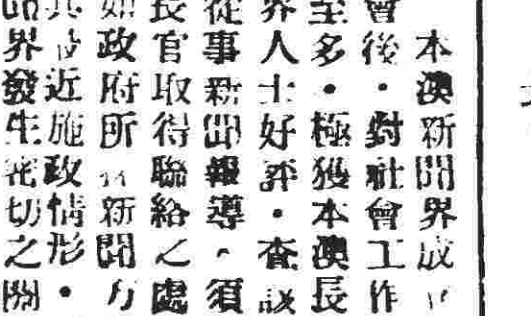 本澳新聞界成立
會後・對社會工作
至多・極獲本澳長
界人士好評・查該
從事新聞報導，須
長官取得聯絡之處
如政府所有新聞方
其近施政情形・
界發生密切之關